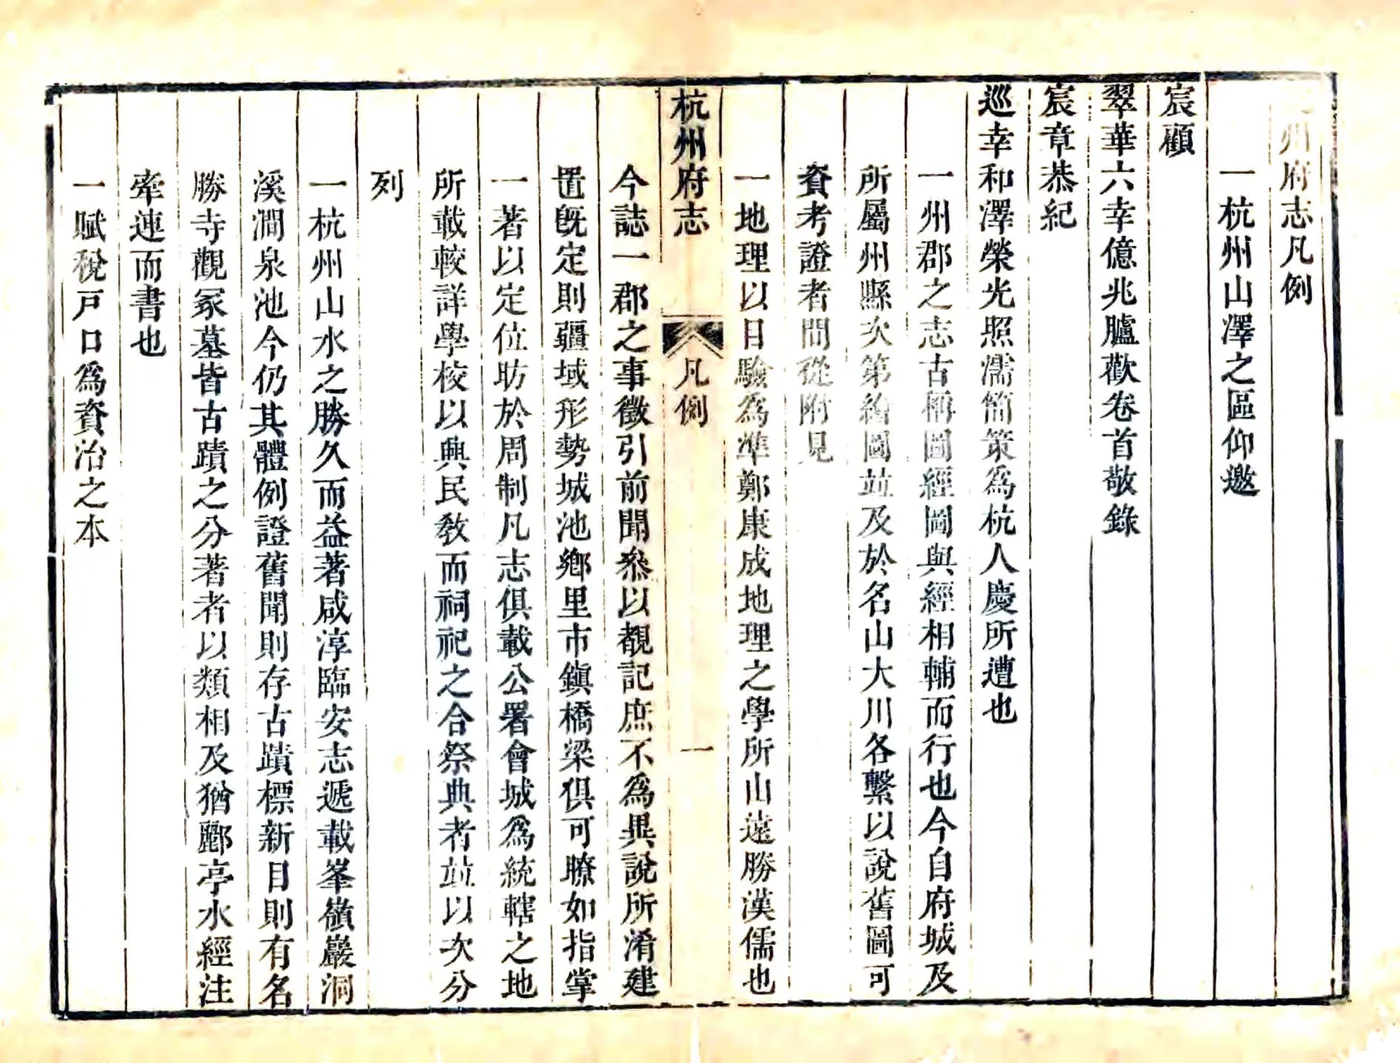 州府志凡例
一杭州山澤之區仰邀
宸顧
翠華六幸億兆臚歡卷首敬錄
宸章恭紀
巡幸和澤榮光照濡簡策為杭人慶所遭也
一州郡之志古稱圖經圖與經相輔而行也今自府城及
所屬州縣次第繪圖並及於名山大川各繫以說舊圖可
資考證者間從附見
一地理以目驗為準鄭康成地理之學所山遠勝漢儒也
杭州府志 凡例 一
今誌一郡之事徵引前聞叅以覩記庶不為異說所淆建
置旣定則疆域形勢城池鄕里市鎮橋梁俱可瞭如指掌
一著以定位昉於周制凡志俱載公署會城為統轄之地
所載較詳學校以興民敎而祠祀之合祭典者並以次分
列
一杭州山水之勝久而益著咸淳臨安志遞載峯嶺巖洞
溪澗泉池今仍其體例證舊聞則存古蹟標新目則有名
勝寺觀冢墓皆古蹟之分著者以類相及猶酈亭水經注
牽連而書也
一賦稅戸口為資治之本